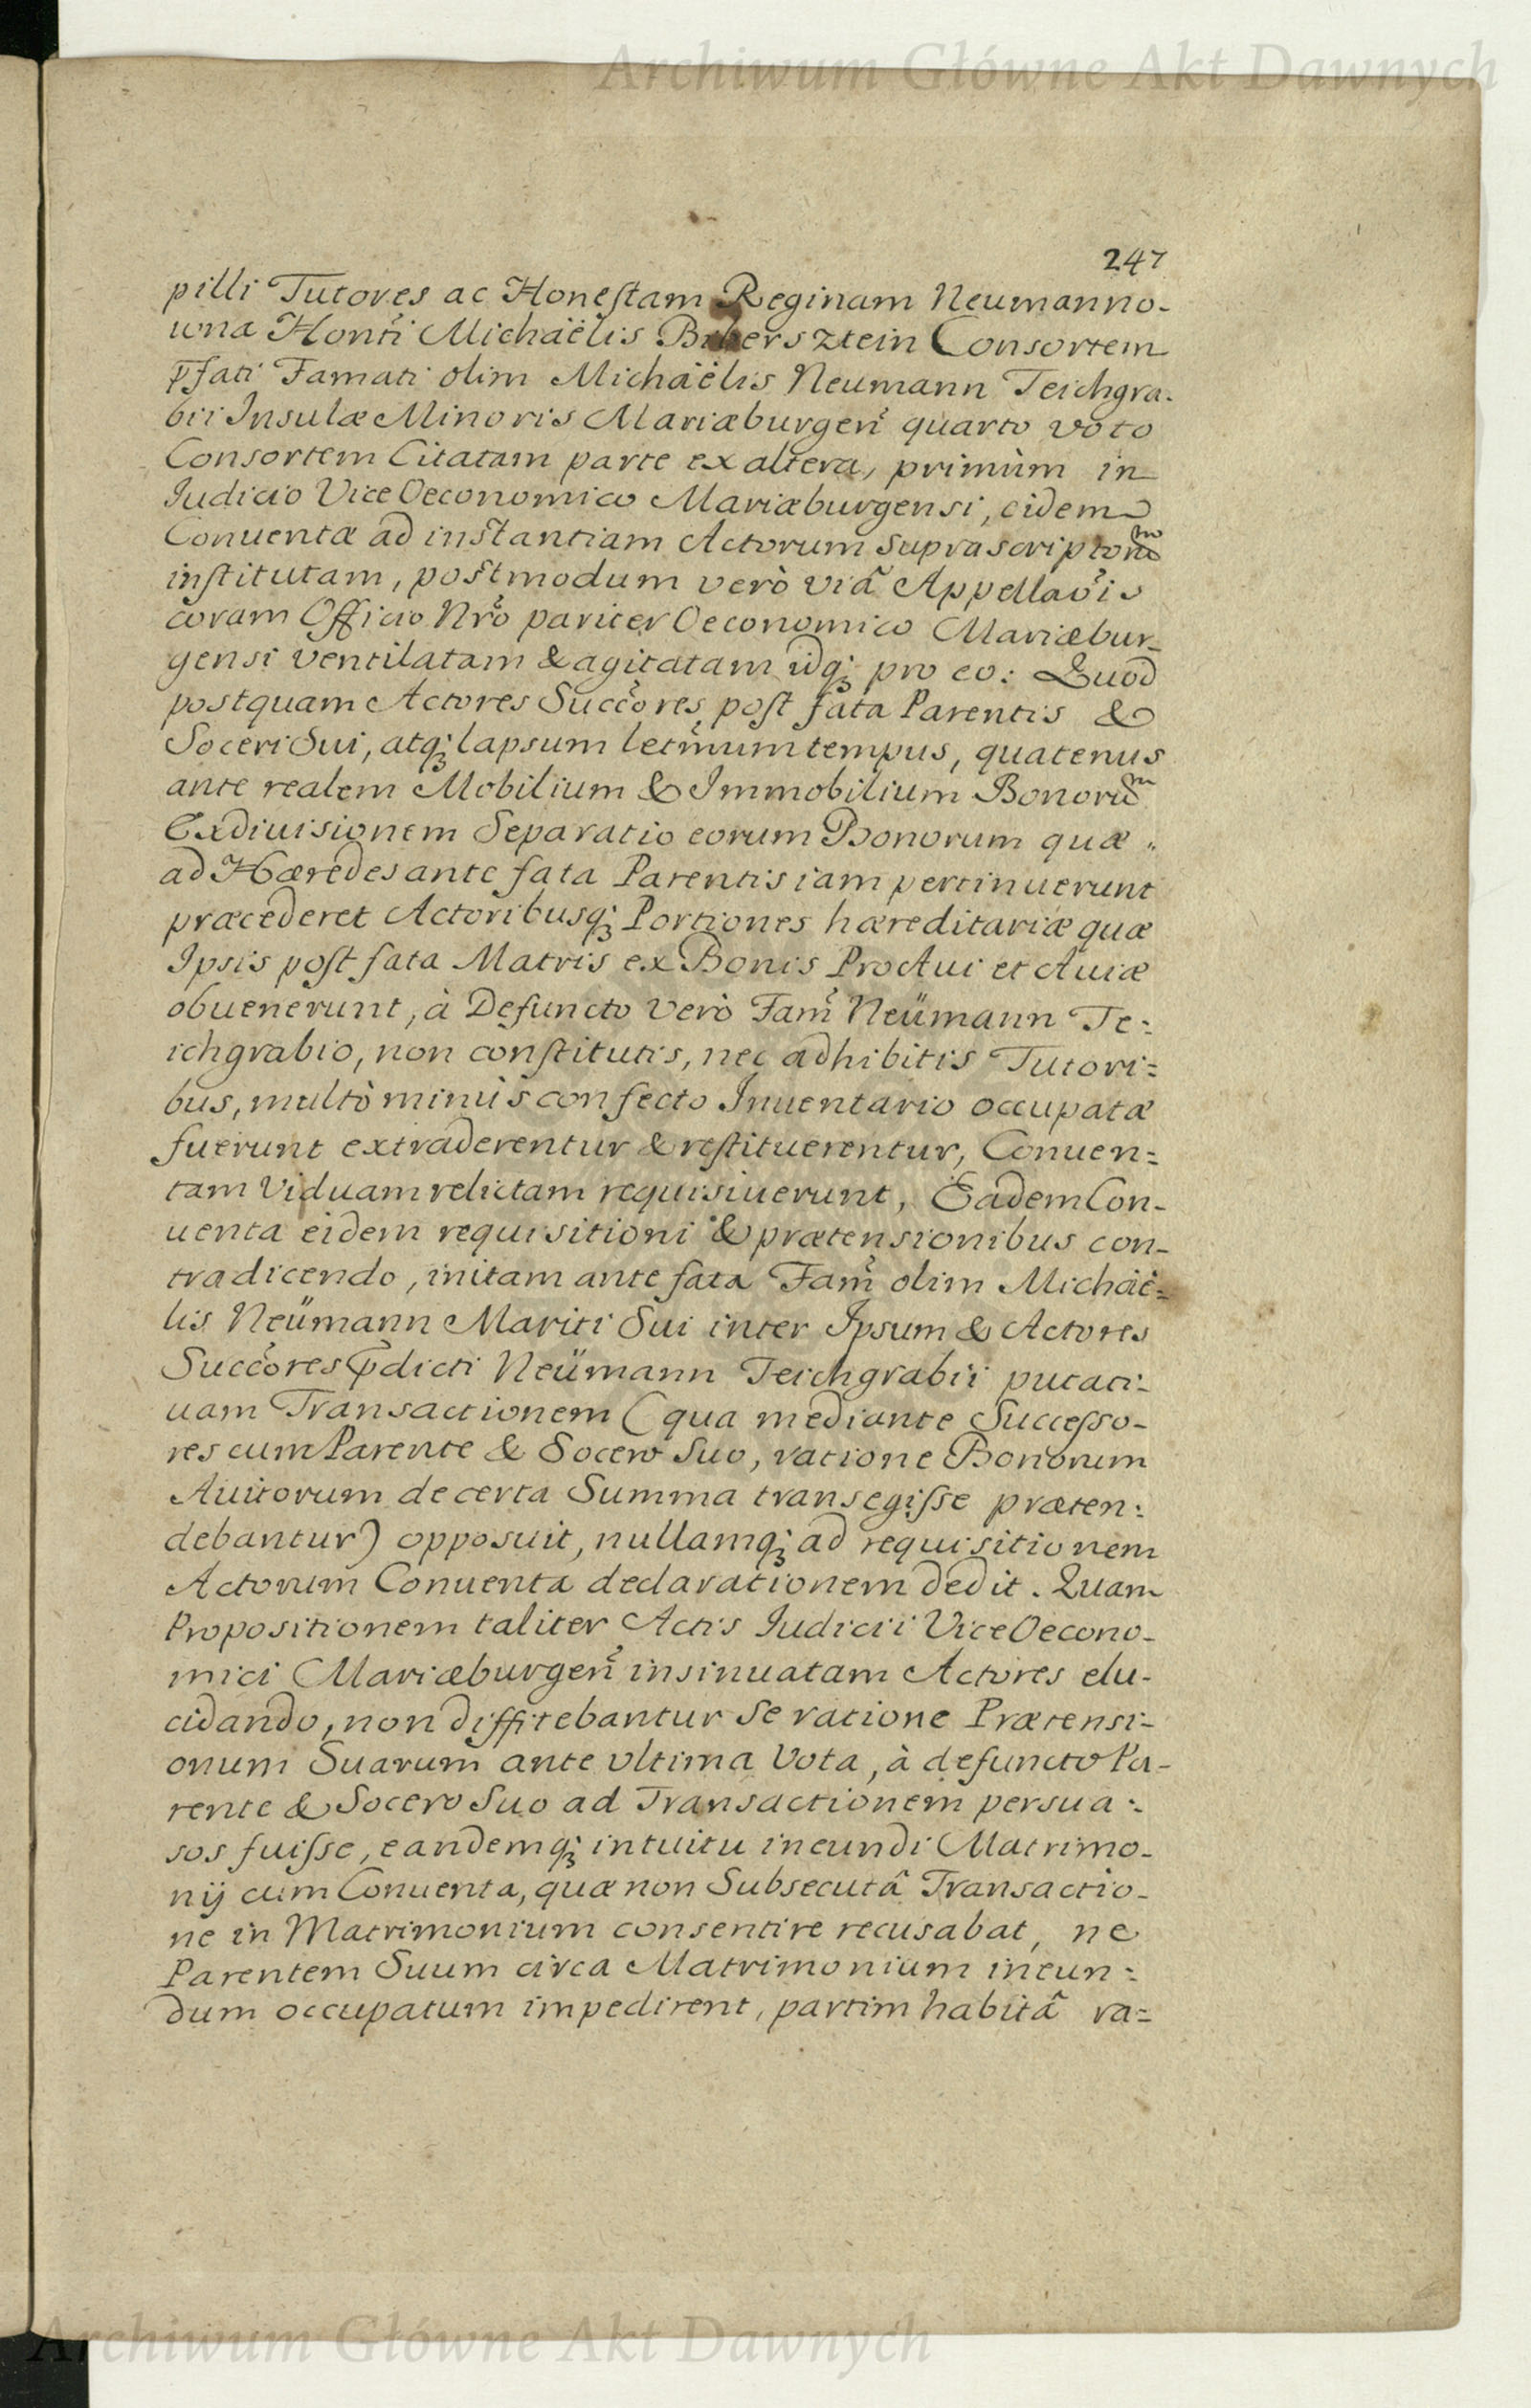 Archiwum Główne Akt Dawnych
247
pilli Tutores ac Honestam Reginam Neumanno-
wna Honti Michaëlis Bibersztein Consortem
pfati Famati olim Michaëlis Neumann Teichgra-
bii Insulæ Minoris Mariæburgen quarto voto
Consortem Citatam parte ex altera, primùm in
Iudicio Vice Oeconomico Mariæburgensi, eidem
Conuentæ ad instantiam Actorum suprascriptorũ
institutam, postmodum verò viâ Appellaõis
coram Officio Nrõ pariter Oeconomico Mariæbur-
gensi ventilatam & agitatam idq; pro eo: Quod
postquam Actores Succõres post fata Parentis &
Soceri Sui, atq; lapsum letimum tempus, quatenus
ante realem Mobilium & Immobilium Bonorũ
Exdiuisionem Separatio eorum Bonorum quæ
ad Hæredes ante fata Parentis iam pertinuerunt
præcederet Actoribusq; Portiones hæreditariæ quæ
Ipsis post fata Matris ex Bonis ProAui et Auiæ
obuenerunt, à Defuncto verò Fam Neümann Te:
ichgrabio, non constitutis, nec adhibitis Tutori:
bus, multò minùs confecto Inuentario occupatæ
fuerunt extraderentur & restituerentur, Conuen:
tam Viduam relictam requisiuerunt, Eadem Con-
uenta eidem requisitioni & prætensionibus con-
tradicendo, initam ante fata Fam olim Michaë-
lis Neümann Mariti Sui inter Ipsum & Actores
Succõres pdicti Neümann Teichgrabii putati-
uam Transactionem (qua mediante Successo-
res cum Parente & Socero Suo, ratione Bonorum
Auitorum de certa Summa transegisse præten:
debantur) opposuit, nullamq; ad requisitionem
Actorum Conuenta declarationem dedit. Quam
Propositionem taliter Actis Iudicii Vice Oecono-
mici Mariæburgen insinuatam Actores elu-
cidando, non diffitebantur Se ratione Prætensi-
onum Suarum ante ultima Vota, à defuncto Pa-
rente & Socero Suo ad Transactionem persua:
sos fuisse, eandemq; intuitu ineundi Matrimo-
nij cum Conuenta, quæ non Subsecutâ Transactio-
ne in Matrimonium consentire recusabat, ne
Parentem Suum circa Matrimonium ineun:
dum occupatum impedirent, partim habitâ ra:
Archiwum Główne Akt Dawnych